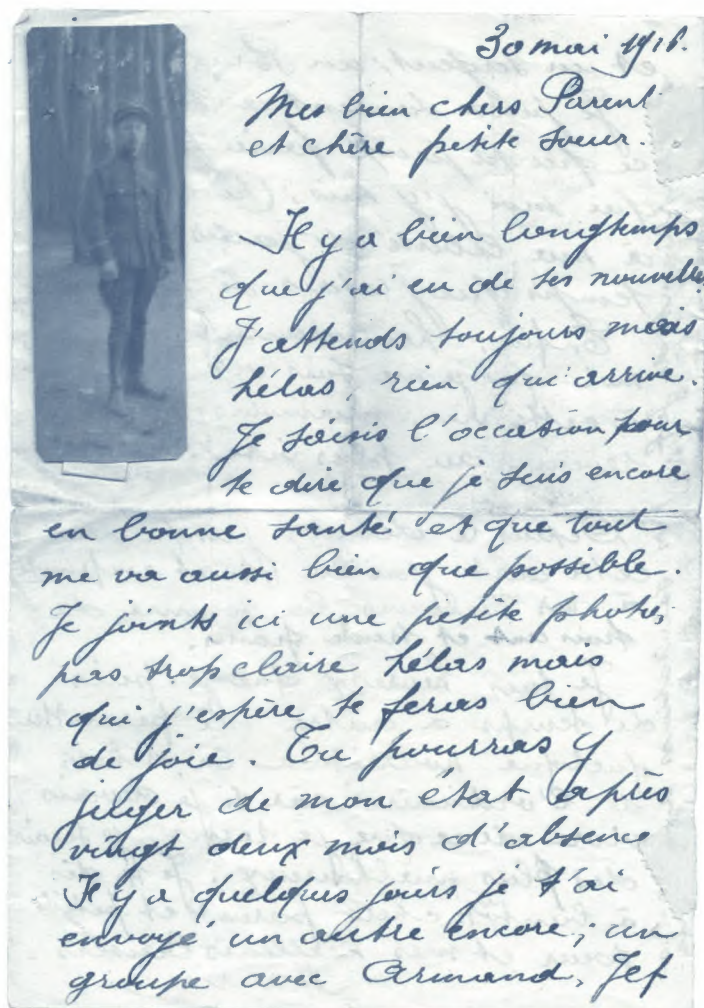 30 mai 1916.
Mes bien chers Parent
et chère petite soeur.
Il y a bien longtemps
que j'ai eu de tes nouvelles
J'attends toujours mais
hélas, rien qui arrive.
Je saisis l'occasion pour
te dire que je suis encore
en bonne santé et que tout
me va aussi bien que possible.
Je joints ici une petite photo,
pas trop claire hélas mais
qui j'espère te feras bien
de joie. Tu pourras y
juger de mon état après
vingt deux mois d'absence
Il y a quelques jours je t'ai
envoyé un autre encore; un
groupe avec Armand, Jef